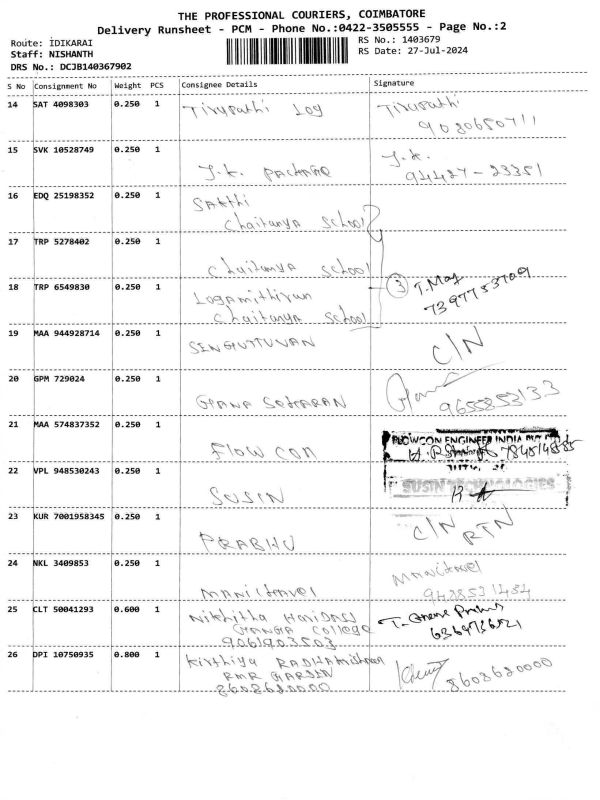 THE PROFESSIONAL COURIERS, COIMBATORE
Delivery Runsheet - PCM - Phone No.:0422-3505555 - Page No.:2
Route: IDIKARAI
RS No.: 1403679
Staff: NISHANTH
RS Date: 27-Jul-2024
DRS No.: DCJB140367902
S No Consignment No Weight PCS Consignee Details Signature
14 SAT 4098303 0.250 1 Tirupathi Log Tirupathi
9080650711
15 SVK 10528749 0.250 1 J.K. PACKAGE J.K.
94427-23351
16 EDQ 25198352 0.250 1 SAKthi
Chaitanya School
17 TRP 5278402 0.250 1
Chaitanya School
18 TRP 6549830 0.250 1 Logamithiran 3 T. May
Chaitanya School 7397753709
19 MAA 944928714 0.250 1 SENGUTTUVAN C/N
20 GPM 729024 0.250 1
GNANA SEKARAN
21 MAA 574837352 0.250 1 FLOW CON FLOWCON ENGINEER INDIA PVT
22 VPL 948530243 0.250 1 SUSIN SUSIN TECHNOLOGIES
23 KUR 7001958345 0.250 1 PRABHU C/N RTN
24 NKL 3409853 0.250 1 MANITRAVEL Manitravel
9488531484
25 CLT 50041293 0.600 1 Nikhitha HARIDASS
GANGA College 6369736521
9061903503
26 DPI 10750935 0.800 1 Kirthiya RADHAKrishnan
RMR GARDEN 8608680000
8608680000